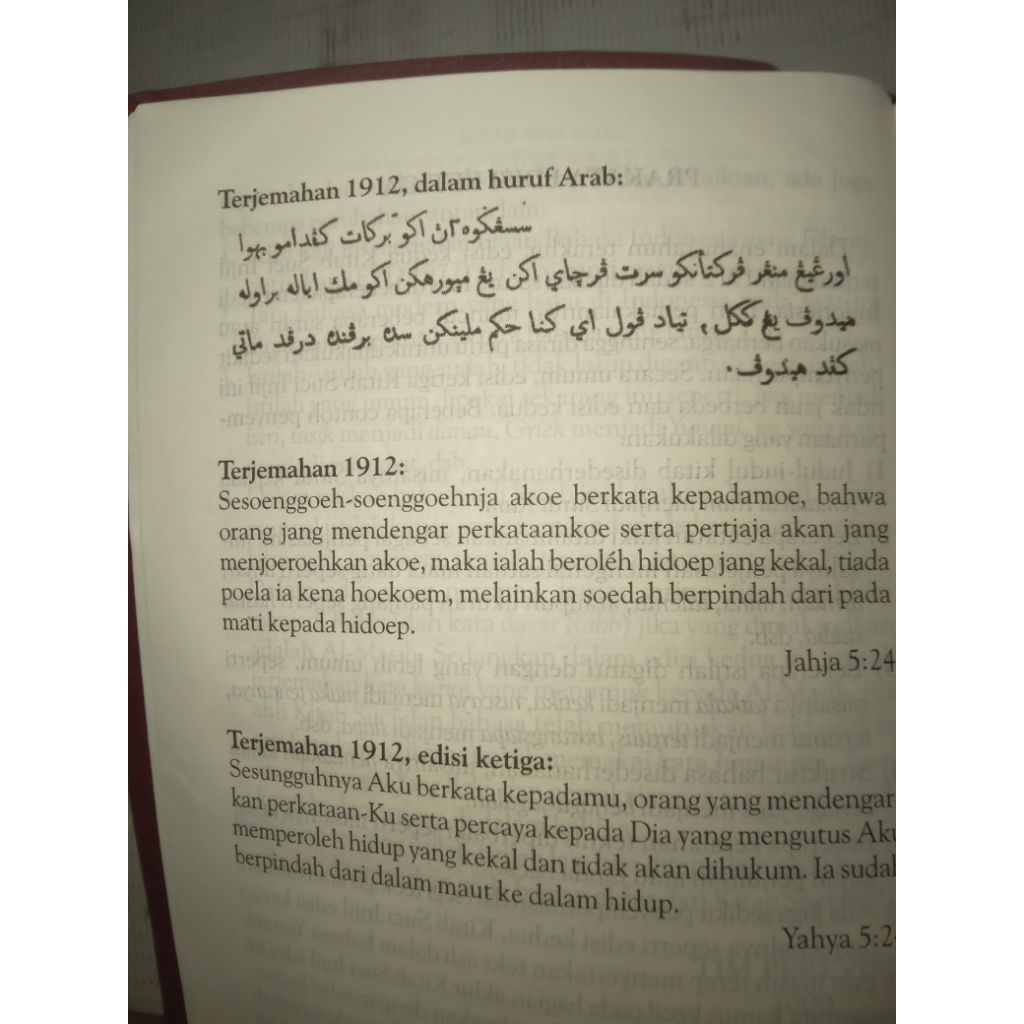 Terjemahan 1912, dalam huruf Arab:
سسڠݢوه٢ن اکو برکات کڤدامو بهوا
اورڠيڠ منڠر ڤرکتأنکو سرت ڤرچاي اکن يڠ مپورهکن اکو مك اياله براوله
هيدوڤ يڠ ککل، تياد ڤول اي کنا حکم ملينکن سده برڤنده درڤد ماتي
کڤد هيدوڤ.
Terjemahan 1912:
Sesoenggoeh-soenggoehnja akoe berkata kepadamoe, bahwa
orang jang mendengar perkataankoe serta pertjaja akan jang
menjoeroehkan akoe, maka ialah beroléh hidoep jang kekal, tiada
poela ia kena hoekoem, melainkan soedah berpindah dari pada
mati kepada hidoep.
Jahja 5:24
Terjemahan 1912, edisi ketiga:
Sesungguhnya Aku berkata kepadamu, orang yang mendengar
kan perkataan-Ku serta percaya kepada Dia yang mengutus Aku
memperoleh hidup yang kekal dan tidak akan dihukum. Ia sudah
berpindah dari dalam maut ke dalam hidup.
Yahya 5:2